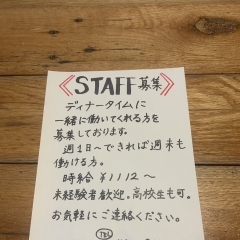 《STAFF募集》
ディナータイムに
一緒に働いてくれる方を
募集しております。
週1日〜できれば週末も
働ける方。
時給 ¥1112〜
未経験者歓迎。高校生も可。
お気軽にご連絡ください。
TEL